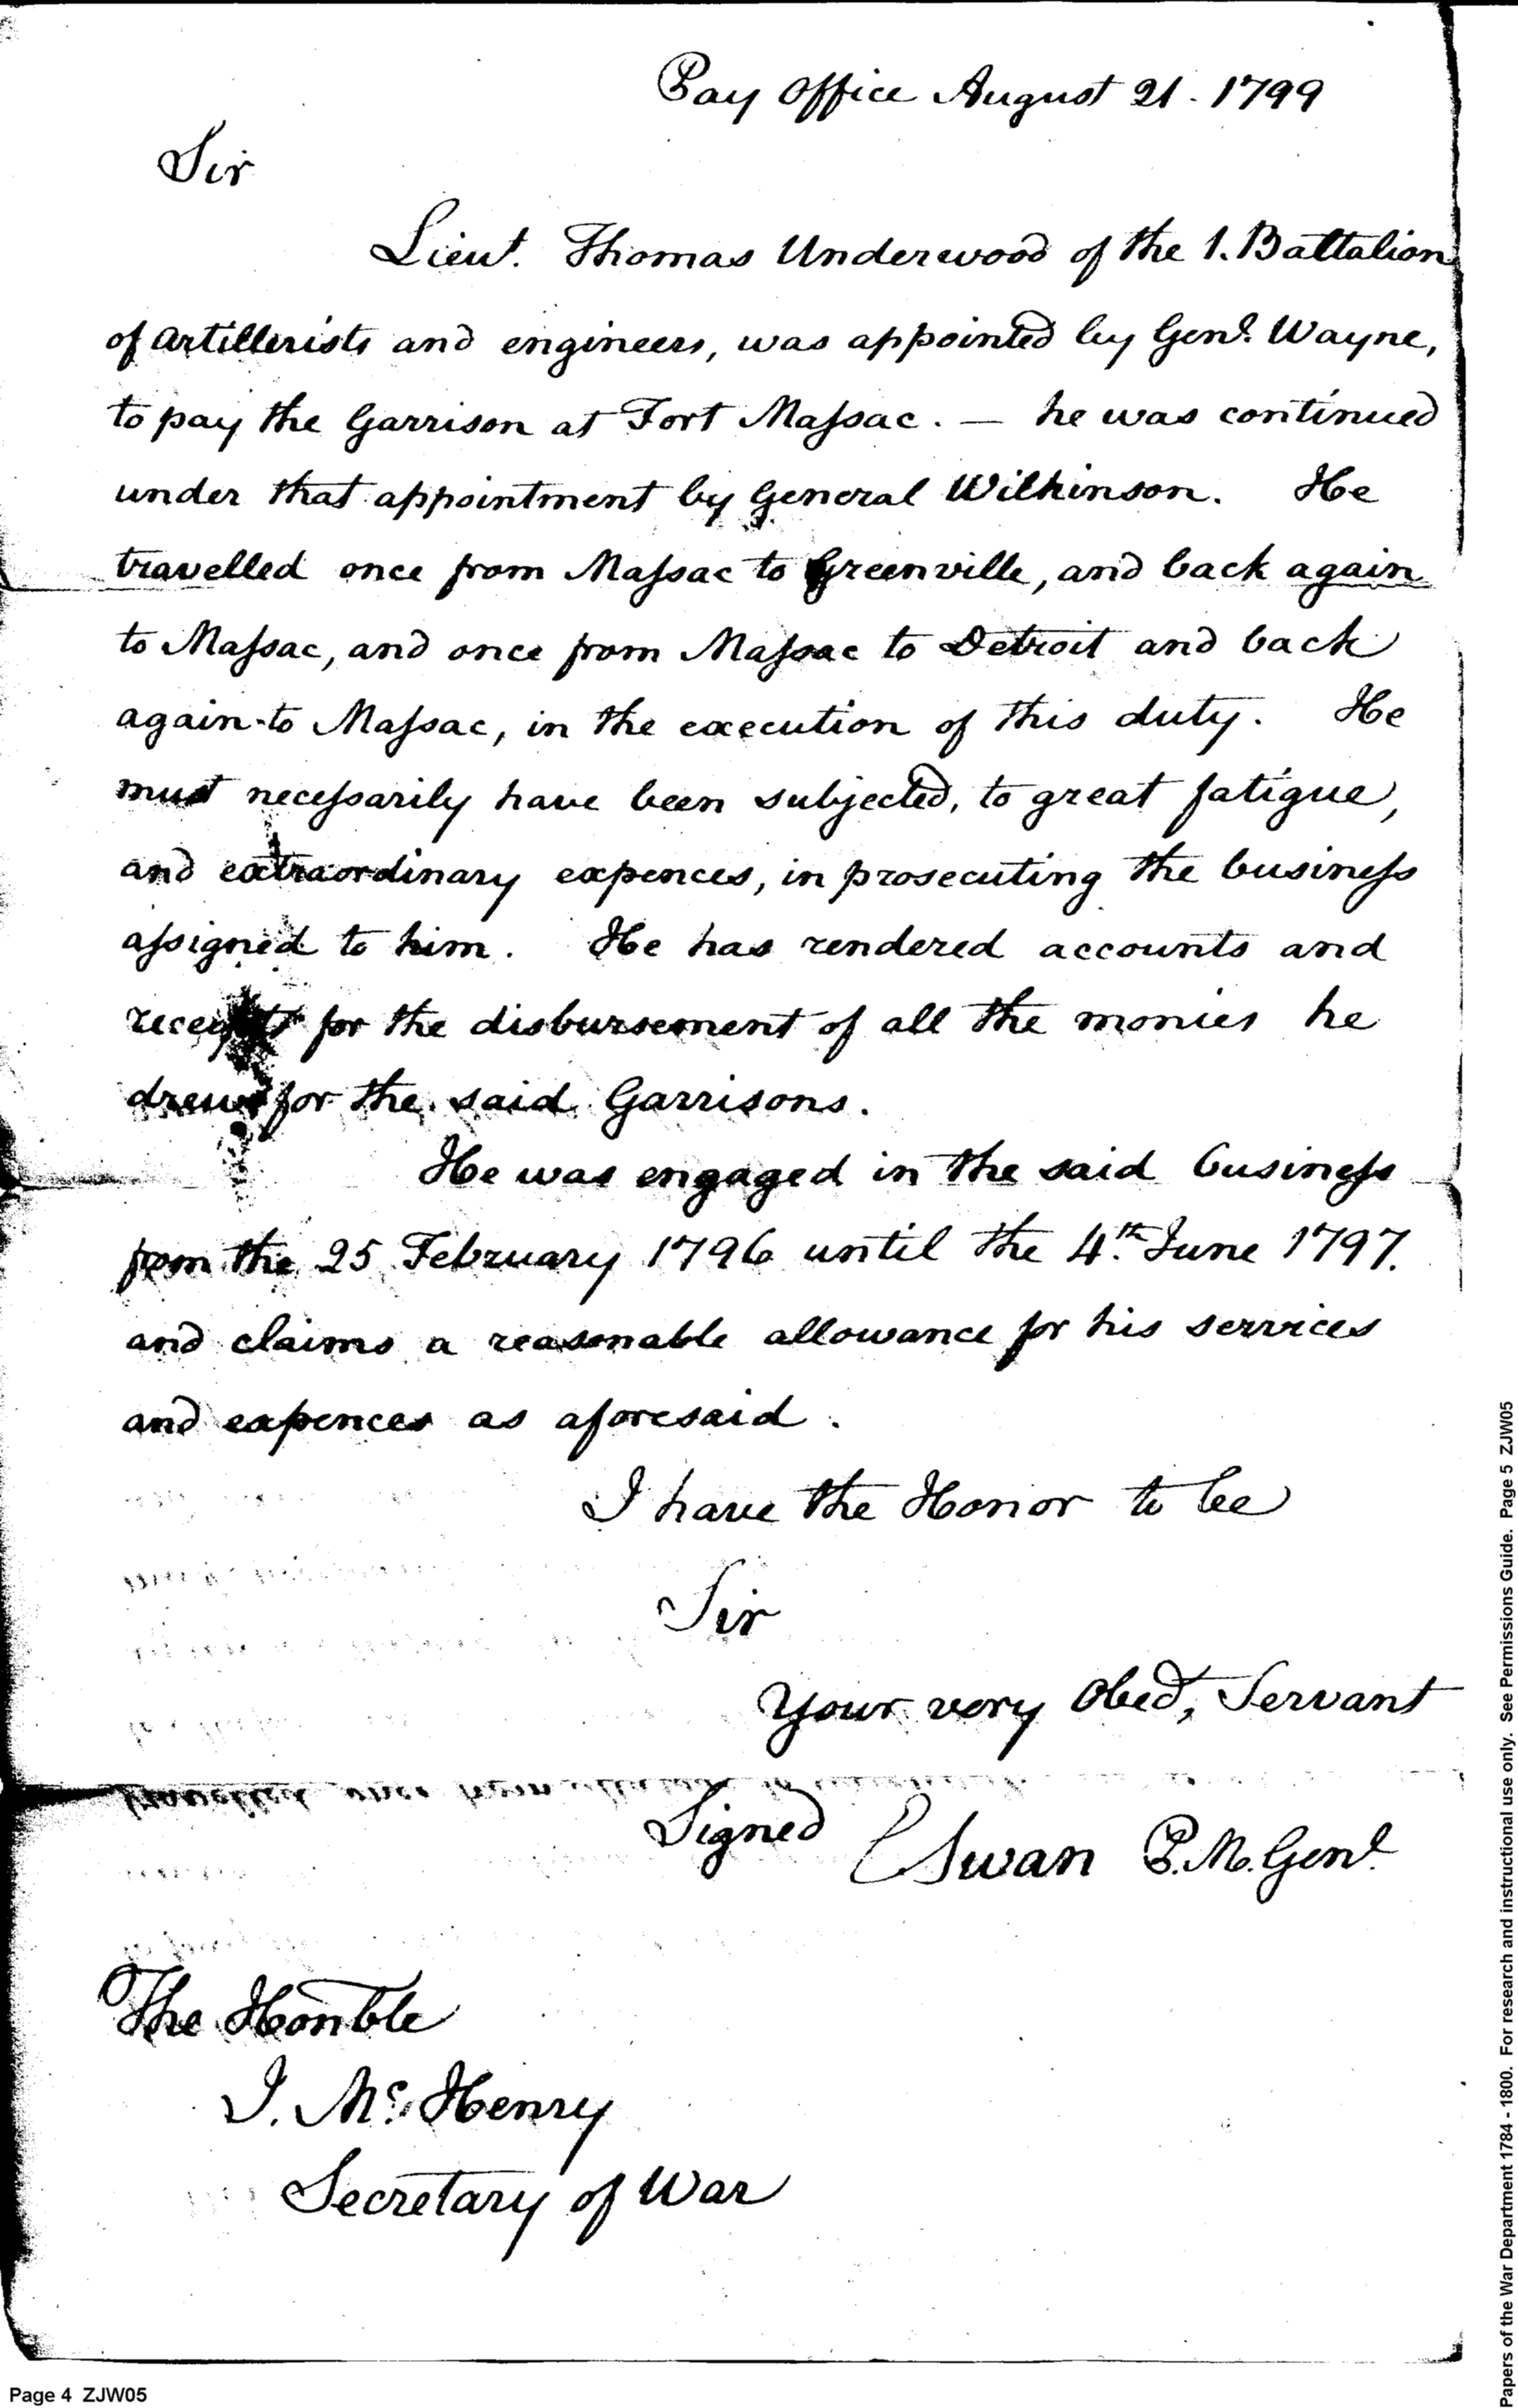 Pay Office August 21. 1799
Sir
Lieut. Thomas Underwood of the 1. Battalion
of artillerists and engineers, was appointed by Genl. Wayne,
to pay the Garrison at Fort Maſsac. — he was continued
under that appointment by General Wilkinson. He
travelled once from Maſsac to Greenville, and back again
to Maſsac, and once from Maſsac to Detroit and back
again to Maſsac, in the execution of this duty. He
must neceſsarily have been subjected, to great fatigue,
and extraordinary expences, in prosecuting the buſineſs
aſsigned to him. He has rendered accounts and
receipts for the disbursement of all the monies he
drew for the said Garrisons.
He was engaged in the said busineſs
from the 25 February 1796 until the 4.th June 1797.
and claims a reasonable allowance for his services
and expences as aforesaid.
I have the Honor to be
Sir
Your very Obed, Servant
Signed CSwan P.M. Genl
The Honble
J. Mc. Henry
Secretary of War
Page 4 ZJW05
Papers of the War Department 1784 - 1800. For research and instructional use only. See Permissions Guide. Page 5 ZJW05